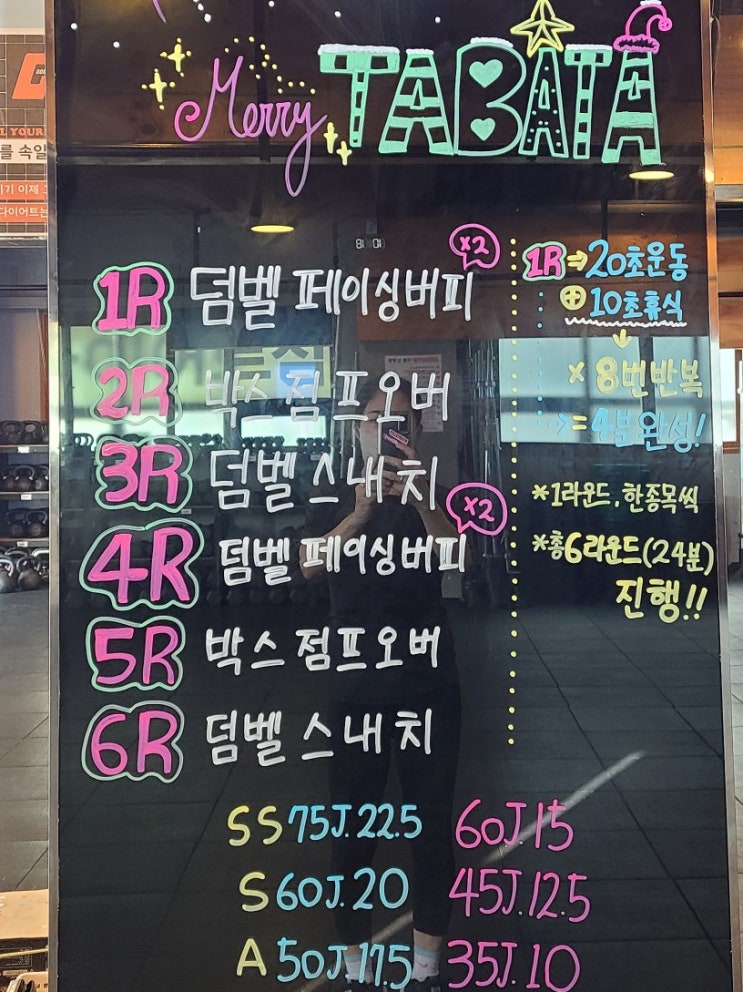 Merry TABATA
1R 덤벨 페이싱버피 x2
2R 박스 점프오버
3R 덤벨 스내치
4R 덤벨 페이싱버피 x2
5R 박스 점프오버
6R 덤벨 스내치
1R ⇒ 20초운동
+ 10초휴식
x 8번반복
= 4분완성!
*1라운드, 한종목씩
*총6라운드(24분)
진행!!
SS 75J. 22.5 60J. 15
S 60J. 20 45J. 12.5
A 50J. 17.5 35J. 10
를 속일
다이어트는